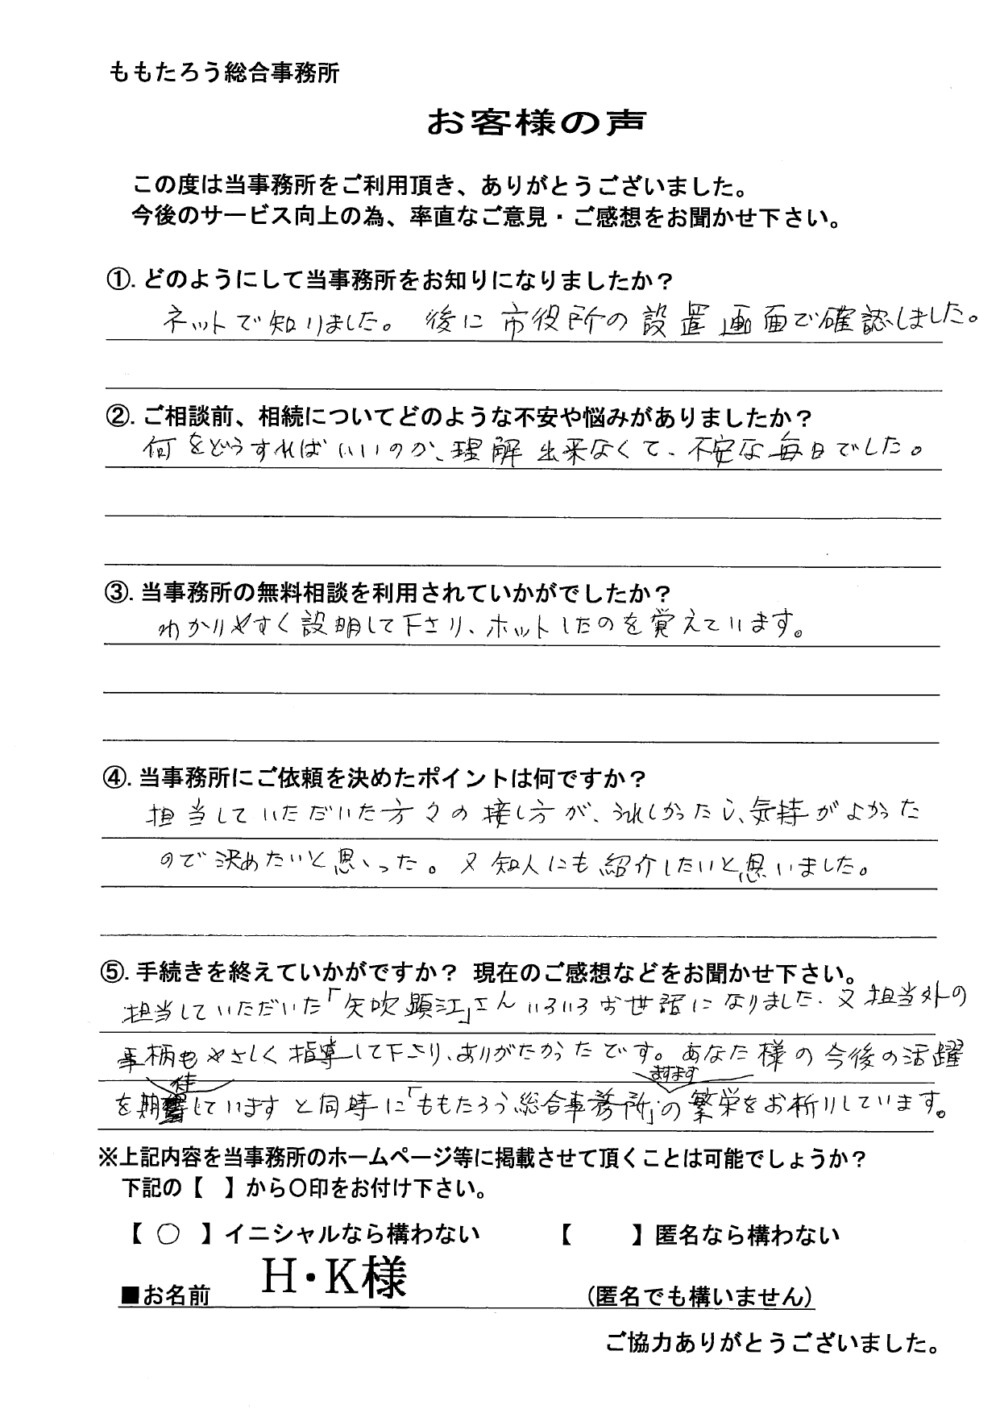 ももたろう総合事務所
お客様の声
この度は当事務所をご利用頂き、ありがとうございました。
今後のサービス向上の為、率直なご意見・ご感想をお聞かせ下さい。
①. どのようにして当事務所をお知りになりましたか？
ネットで知りました。後に市役所の設置画面で確認しました。
②. ご相談前、相続についてどのような不安や悩みがありましたか？
何をどうすればいいのか、理解出来なくて、不安な毎日でした。
③. 当事務所の無料相談を利用されていかがでしたか？
わかりやすく説明して下さり、ホットしたのを覚えています。
④. 当事務所にご依頼を決めたポイントは何ですか？
担当していただいた方々の接し方が、うれしかったし、気持がよかった
ので決めたいと思いった。又知人にも紹介したいと思いました。
⑤. 手続きを終えていかがですか？ 現在のご感想などをお聞かせ下さい。
担当していただいた「矢吹顕江」さんいろいろお世話になりました。又担当外の
事柄もやさしく指導して下さり、ありがたかったです。あなた様の今後の活躍
を期待していますと同時に「ももたろう総合事務所」のますます繁栄をお祈りしています。
※上記内容を当事務所のホームページ等に掲載させて頂くことは可能でしょうか？
下記の【　】から〇印をお付け下さい。
【 〇 】イニシャルなら構わない 【　　】匿名なら構わない
■お名前 H・K様 (匿名でも構いません)
ご協力ありがとうございました。